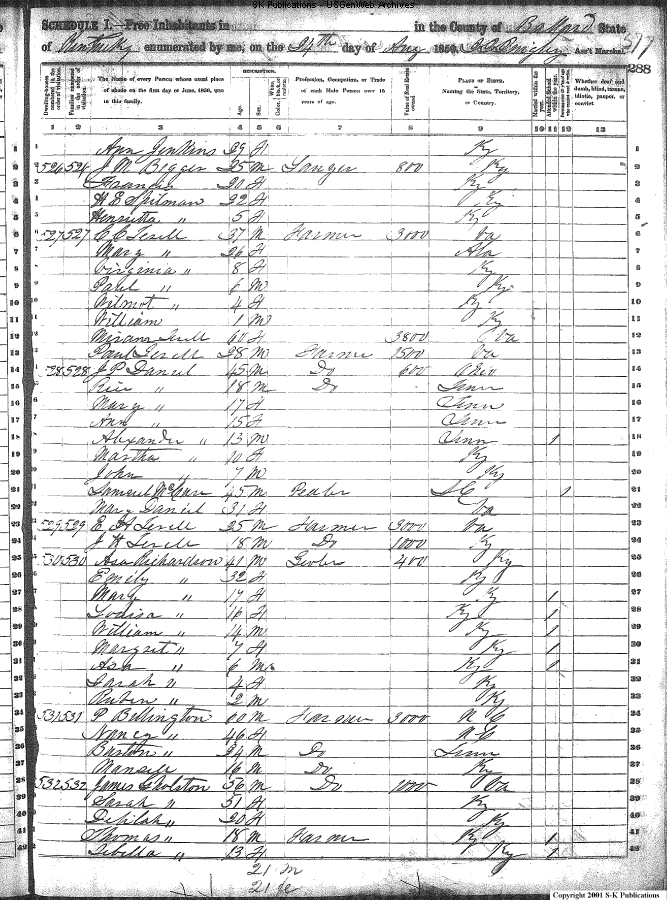 S-K Publications - USGenWeb Archives
SCHEDULE I.—Free Inhabitants in in the County of Ballard State
of Kentucky enumerated by me, on the 24th day of Aug 1850. Ass't Marshal. 517
288
Dwelling-houses numbered in the order of visitation. Families numbered in the order of visitation. The Name of every Person whose usual place of abode on the first day of June, 1850, was in this family. DESCRIPTION. Age. Sex. Color, White, black, or mulatto. Profession, Occupation, or Trade of each Male Person over 15 years of age. Value of Real Estate owned. PLACE OF BIRTH. Naming the State, Territory, or Country. Married within the year. Attended School within the year. Persons over 20 y'rs of age who cannot read & write. Whether deaf and dumb, blind, insane, idiotic, pauper, or convict.
1 2 3 4 5 6 7 8 9 10 11 12 13
1 Ann Jenkins 29 F Ky 1
2 526 526 J M Bigger 25 M 800 Ky 2
3 Frances 20 F Ky 3
4 H E Spilman 22 F Ky 4
5 Henrietta " 5 F Ky 5
6 527 527 C C Terell 37 M Farmer 3000 Va 6
7 Mary " 26 F Ala 7
8 Virginia " 8 F Ky 8
9 Paul " 6 M Ky 9
10 Wilmot " 4 F Ky 10
11 William 1 M Ky 11
12 Miriam Terell 60 F 3800 Va 12
13 Paul Terell 28 M Farmer 1500 Va 13
14 528 528 J P Daniel 45 M Do 600 Ohio 14
15 Rice " 18 M Do Tenn 15
16 Mary " 17 F Tenn 16
17 Ann " 15 F Tenn 17
18 Alexander " 13 M Tenn 1 18
19 Martha " 10 F Ky 19
20 John " 7 M Ky 20
21 Samuel 45 M S C 1 21
22 Mary Daniel 31 F Va 22
23 529 529 E H Terell 25 M Farmer 3000 Va 23
24 J H Terell 18 M Do 1000 Ky 24
25 530 530 Asa Richardson 41 M 400 Ky 25
26 Emily " 32 F Ky 26
27 Mary " 17 F Ky 1 27
28 Lodisa " 16 F Ky 1 28
29 William " 14 M Ky 1 29
30 Margret " 7 F Ky 1 30
31 Asa " 6 M Ky 1 31
32 Sarah " 4 F Ky 32
33 Ruben " 2 M Ky 33
34 531 531 P Billington 60 M Farmer 3000 N C 34
35 Nancy " 46 F N C 35
36 Barton " 24 M Do Tenn 36
37 " 16 M Do Ky 37
38 532 532 James Gholston 56 M Do 1000 Va 38
39 Sarah " 51 F Ky 39
40 Delilah " 20 F Ky 40
41 Thomas " 18 M Farmer Ky 1 41
42 Sibella " 13 F Ky 1 42
21 m
21 fe
Copyright 2001 S-K Publications